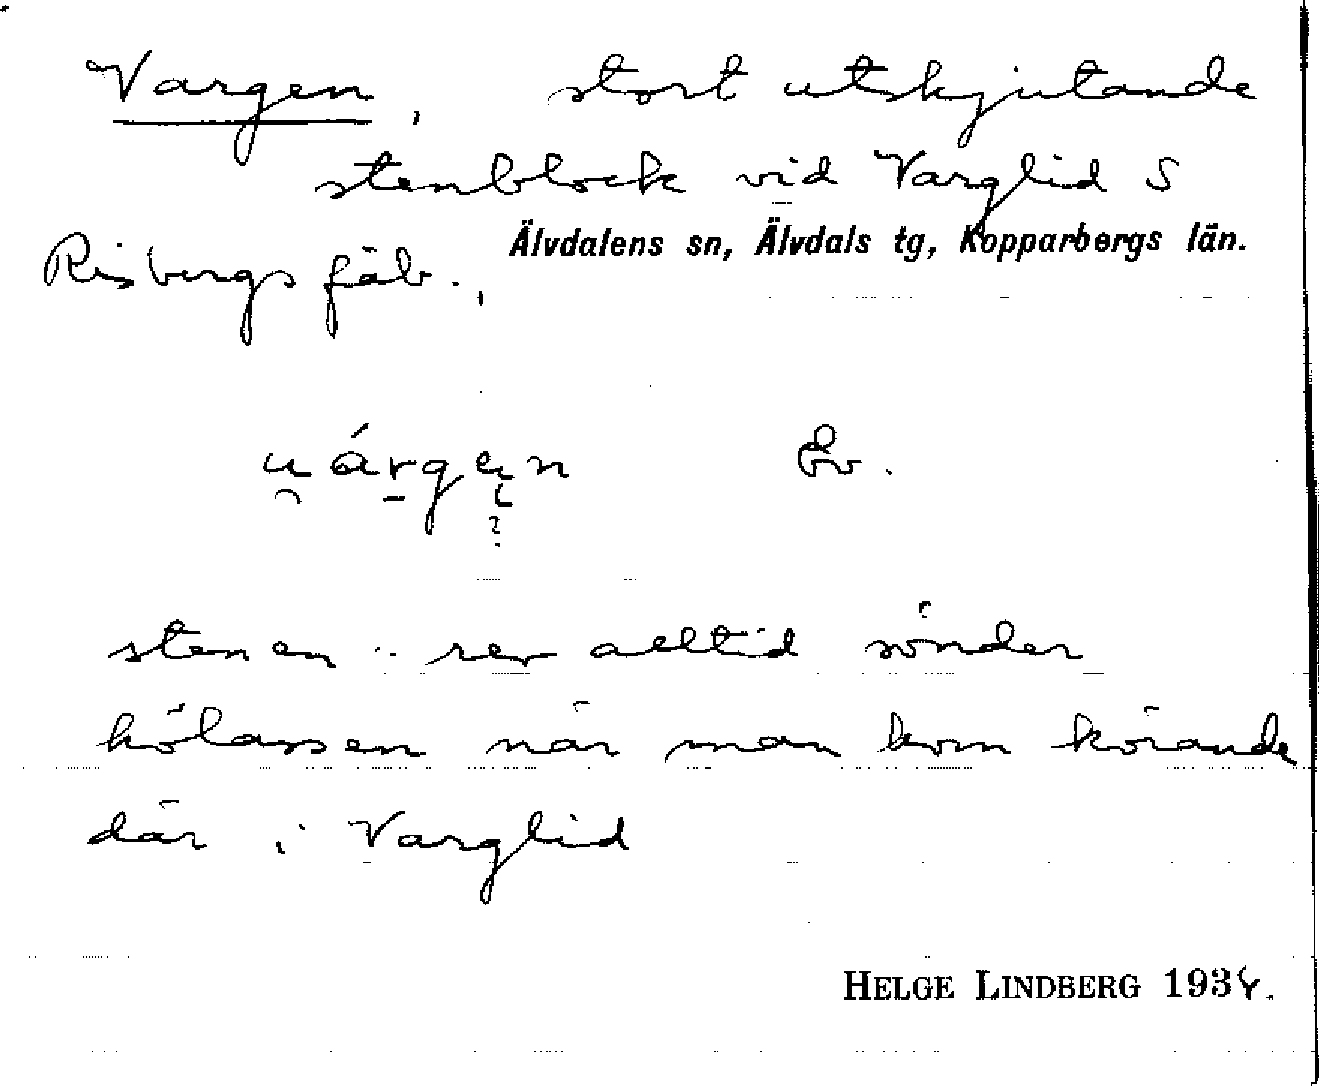 Vargen, stort utskjutande
stenblock vid Varglid S
Älvdalens sn, Älvdals tg, Kopparbergs län.
Risbergs fäb.,
u̯árgen Ev.
?
stenen .. rev alltid sönder
hölassen när man kom körande
där i Varglid
HELGE LINDBERG 1934.